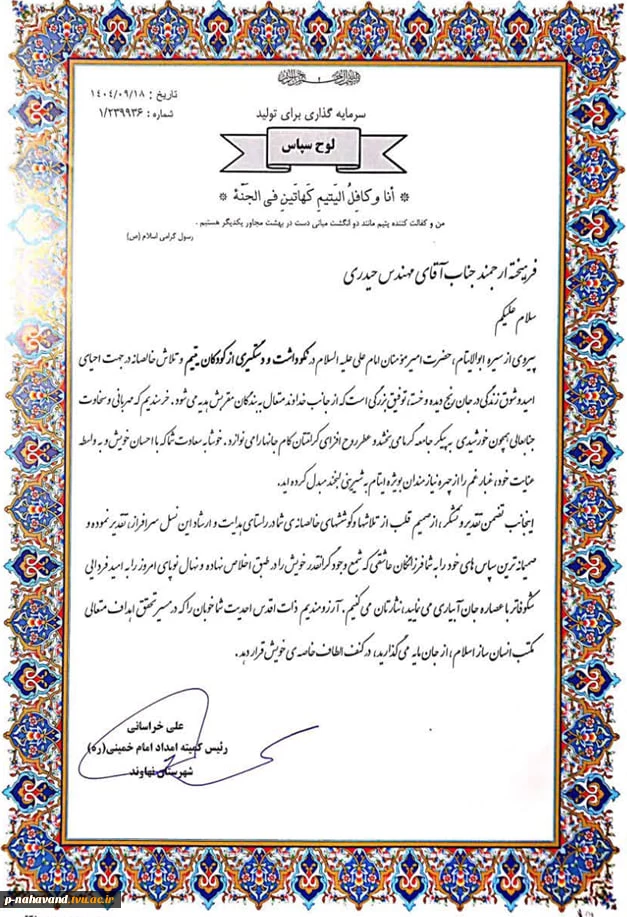 بسم الله الرحمن الرحیم
تاریخ : ۱۴۰۴/۰۹/۱۸
شماره : ۱/۲۳۹۹۳۶
سرمایه گذاری برای تولید
لوح سپاس
أنا و کافِلُ الیَتیمِ کَهاتَینِ فی الجَنَّة
من و کفالت کننده یتیم مانند دو انگشت میانی دست در بهشت مجاور یکدیگر هستیم .
رسول گرامی اسلام (ص)
فرهیخته ارجمند جناب آقای مهندس حیدری
سلام علیکم
پیروی از سیره ابوالایتام، حضرت امیرمؤمنان امام علی علیه السلام در نکوداشت و دستگیری از کودکان یتیم و تلاش خالصانه در جهت احیای
امید و شوق زندگی در جان رنج دیده و خسته، توفیق بزرگی است که از جانب خداوند متعال به بندگان مقربش هدیه می شود . خرسندیم که مهربانی و سخاوت
جنابعالی همچون خورشیدی به پیکر جامعه گرما می بخشد و عطر روح افزای کرامتتان کام جانها را می نوازد . خوشا به سعادت شما که با احسان خویش و به واسطه
عنایت خود، غبار غم را از چهره نیازمندان بویژه ایتام به شیرینی لبخند مبدل کرده اید.
اینجانب تضمن تقدیر و تشکر ، از صمیم قلب از تلاشها و کوششهای خالصانه ی شما در راستای هدایت و ارشاد این نسل سرافراز، تقدیر نموده و
صمیمانه ترین سپاس های خود را به شما فرزانگان عاشقی که شمع وجود گرانقدر خویش را در طبق اخلاص نهاده و نهال نوپای امروز را به امید فردایی
شکوفاتر با عصاره جان آبیاری می نمایید، نثارتان می کنیم . آرزومندیم ذات اقدس احدیت شما خوبان را که در مسیر تحقق اهداف متعالی
مکتب انسان ساز اسلام ، از جان مایه می گذارید، در کنف الطاف خاصه ی خویش قرار دهد .
علی خراسانی
رئیس کمیته امداد امام خمینی(ره)
شهرستان نهاوند
p-nahavand.tvu.ac.ir